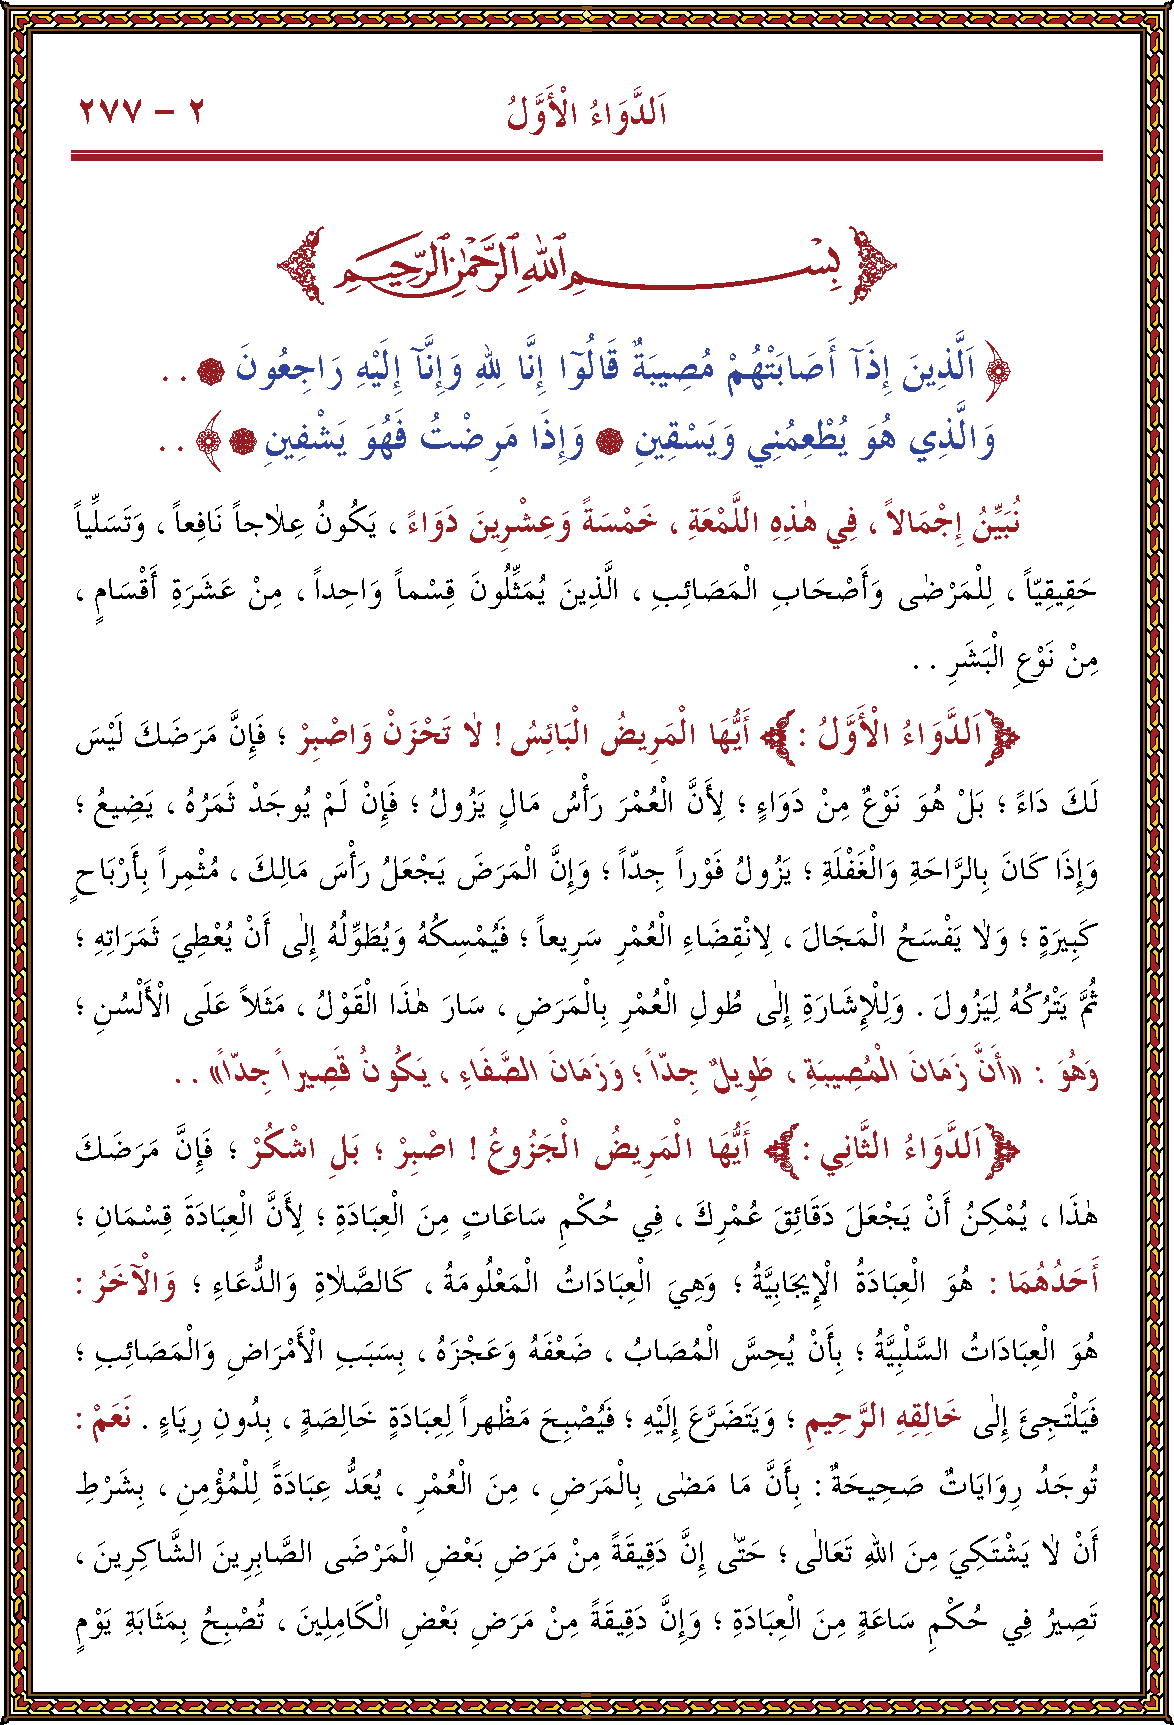 اَلدَّوَاءُ الْأَوَّلُ ٢ – ٢٧٧
بِسْمِ اللهِ الرَّحْمٰنِ الرَّحِيمِ
﴿ اَلَّذِينَ إِذَآ أَصَابَتْهُمْ مُصِيبَةٌ قَالُوٓا إِنَّا لِلهِ وَإِنَّآ إِلَيْهِ رَاجِعُونَ ۞ . .
وَالَّذِي هُوَ يُطْعِمُنِي وَيَسْقِينِ ۞ وَإِذَا مَرِضْتُ فَهُوَ يَشْفِينِ ۞ ﴾ . .
نُبَيِّنُ إِجْمَالاً ، فِي هٰذِهِ اللَّمْعَةِ ، خَمْسَةً وَعِشْرِينَ دَوَاءً ، يَكُونُ عِلَاجاً نَافِعاً ، وَتَسَلِّياً
حَقِيقِيّاً ، لِلْمَرْضٰى وَأَصْحَابِ الْمَصَائِبِ ، الَّذِينَ يُمَثِّلُونَ قِسْماً وَاحِداً ، مِنْ عَشَرَةِ أَقْسَامٍ ،
مِنْ نَوْعِ الْبَشَرِ . .
﴿اَلدَّوَاءُ الْأَوَّلُ :﴾ أَيُّهَا الْمَرِيضُ الْبَائِسُ ! لَا تَحْزَنْ وَاصْبِرْ ؛ فَإِنَّ مَرَضَكَ لَيْسَ
لَكَ دَاءً ؛ بَلْ هُوَ نَوْعٌ مِنْ دَوَاءٍ ؛ لِأَنَّ الْعُمْرَ رَأْسُ مَالٍ يَزُولُ ؛ فَإِنْ لَمْ يُوجَدْ ثَمَرُهُ ، يَضِيعُ ؛
وَإِذَا كَانَ بِالرَّاحَةِ وَالْغَفْلَةِ ؛ يَزُولُ فَوْراً جِدّاً ؛ وَإِنَّ الْمَرَضَ يَجْعَلُ رَأْسَ مَالِكَ ، مُثْمِراً بِأَرْبَاحٍ
كَبِيرَةٍ ؛ وَلَا يَفْسَحُ الْمَجَالَ ، لِانْقِضَاءِ الْعُمْرِ سَرِيعاً ؛ فَيُمْسِكُهُ وَيُطَوِّلُهُ إِلٰى أَنْ يُعْطِيَ ثَمَرَاتِهِ ؛
ثُمَّ يَتْرُكُهُ لِيَزُولَ . وَلِلْإِشَارَةِ إِلٰى طُولِ الْعُمْرِ بِالْمَرَضِ ، سَارَ هٰذَا الْقَوْلُ ، مَثَلاً عَلَى الْأَلْسُنِ ؛
وَهُوَ : «أَنَّ زَمَانَ الْمُصِيبَةِ ، طَوِيلٌ جِدّاً ؛ وَزَمَانَ الصَّفَاءِ ، يَكُونُ قَصِيراً جِدّاً» . .
﴿اَلدَّوَاءُ الثَّانِي :﴾ أَيُّهَا الْمَرِيضُ الْجَزُوعُ ! اصْبِرْ ؛ بَلِ اشْكُرْ ؛ فَإِنَّ مَرَضَكَ
هٰذَا ، يُمْكِنُ أَنْ يَجْعَلَ دَقَائِقَ عُمْرِكَ ، فِي حُكْمِ سَاعَاتٍ مِنَ الْعِبَادَةِ ؛ لِأَنَّ الْعِبَادَةَ قِسْمَانِ ؛
أَحَدُهُمَا : هُوَ الْعِبَادَةُ الْإِيجَابِيَّةُ ؛ وَهِيَ الْعِبَادَاتُ الْمَعْلُومَةُ ، كَالصَّلَاةِ وَالدُّعَاءِ ؛ وَالْآخَرُ :
هُوَ الْعِبَادَاتُ السَّلْبِيَّةُ ؛ بِأَنْ يُحِسَّ الْمُصَابُ ، ضَعْفَهُ وَعَجْزَهُ ، بِسَبَبِ الْأَمْرَاضِ وَالْمَصَائِبِ ؛
فَيَلْتَجِئَ إِلٰى خَالِقِهِ الرَّحِيمِ ؛ وَيَتَضَرَّعَ إِلَيْهِ ؛ فَيُصْبِحَ مَظْهراً لِعِبَادَةٍ خَالِصَةٍ ، بِدُونِ رِيَاءٍ . نَعَمْ :
تُوجَدُ رِوَايَاتٌ صَحِيحَةٌ : بِأَنَّ مَا مَضٰى بِالْمَرَضِ ، مِنَ الْعُمْرِ ، يُعَدُّ عِبَادَةً لِلْمُؤْمِنِ ، بِشَرْطِ
أَنْ لَا يَشْتَكِيَ مِنَ اللهِ تَعَالٰى ؛ حَتّٰى إِنَّ دَقِيقَةً مِنْ مَرَضِ بَعْضِ الْمَرْضَى الصَّابِرِينَ الشَّاكِرِينَ ،
تَصِيرُ فِي حُكْمِ سَاعَةٍ مِنَ الْعِبَادَةِ ؛ وَإِنَّ دَقِيقَةً مِنْ مَرَضِ بَعْضِ الْكَامِلِينَ ، تُصْبِحُ بِمَثَابَةِ يَوْمٍ